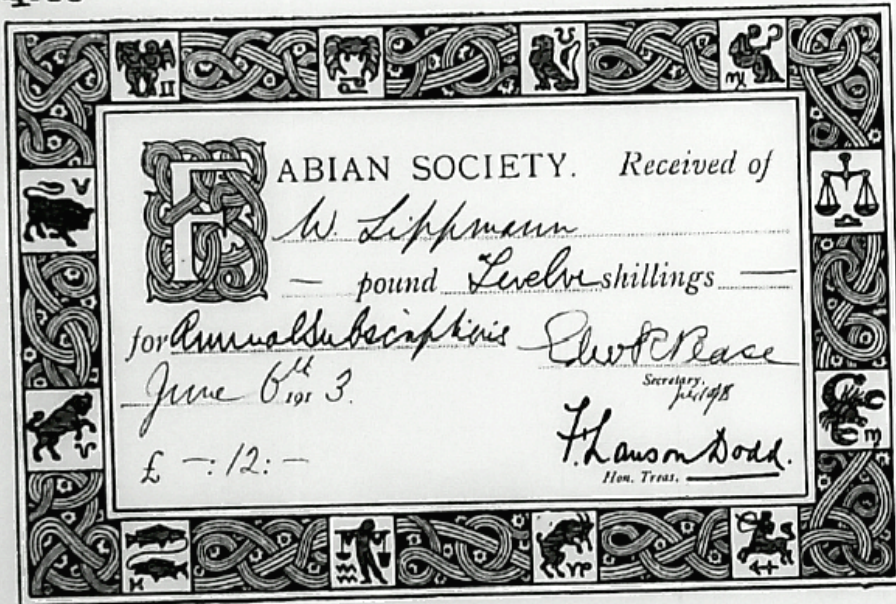 FABIAN SOCIETY. Received of
W. Lippmann
— pound Twelve shillings —
for Annual Subscriptions Edw R Pease
Secretary.
June 6th 1913.
F. Lawson Dodd.
£ —: 12: — Hon. Treas.